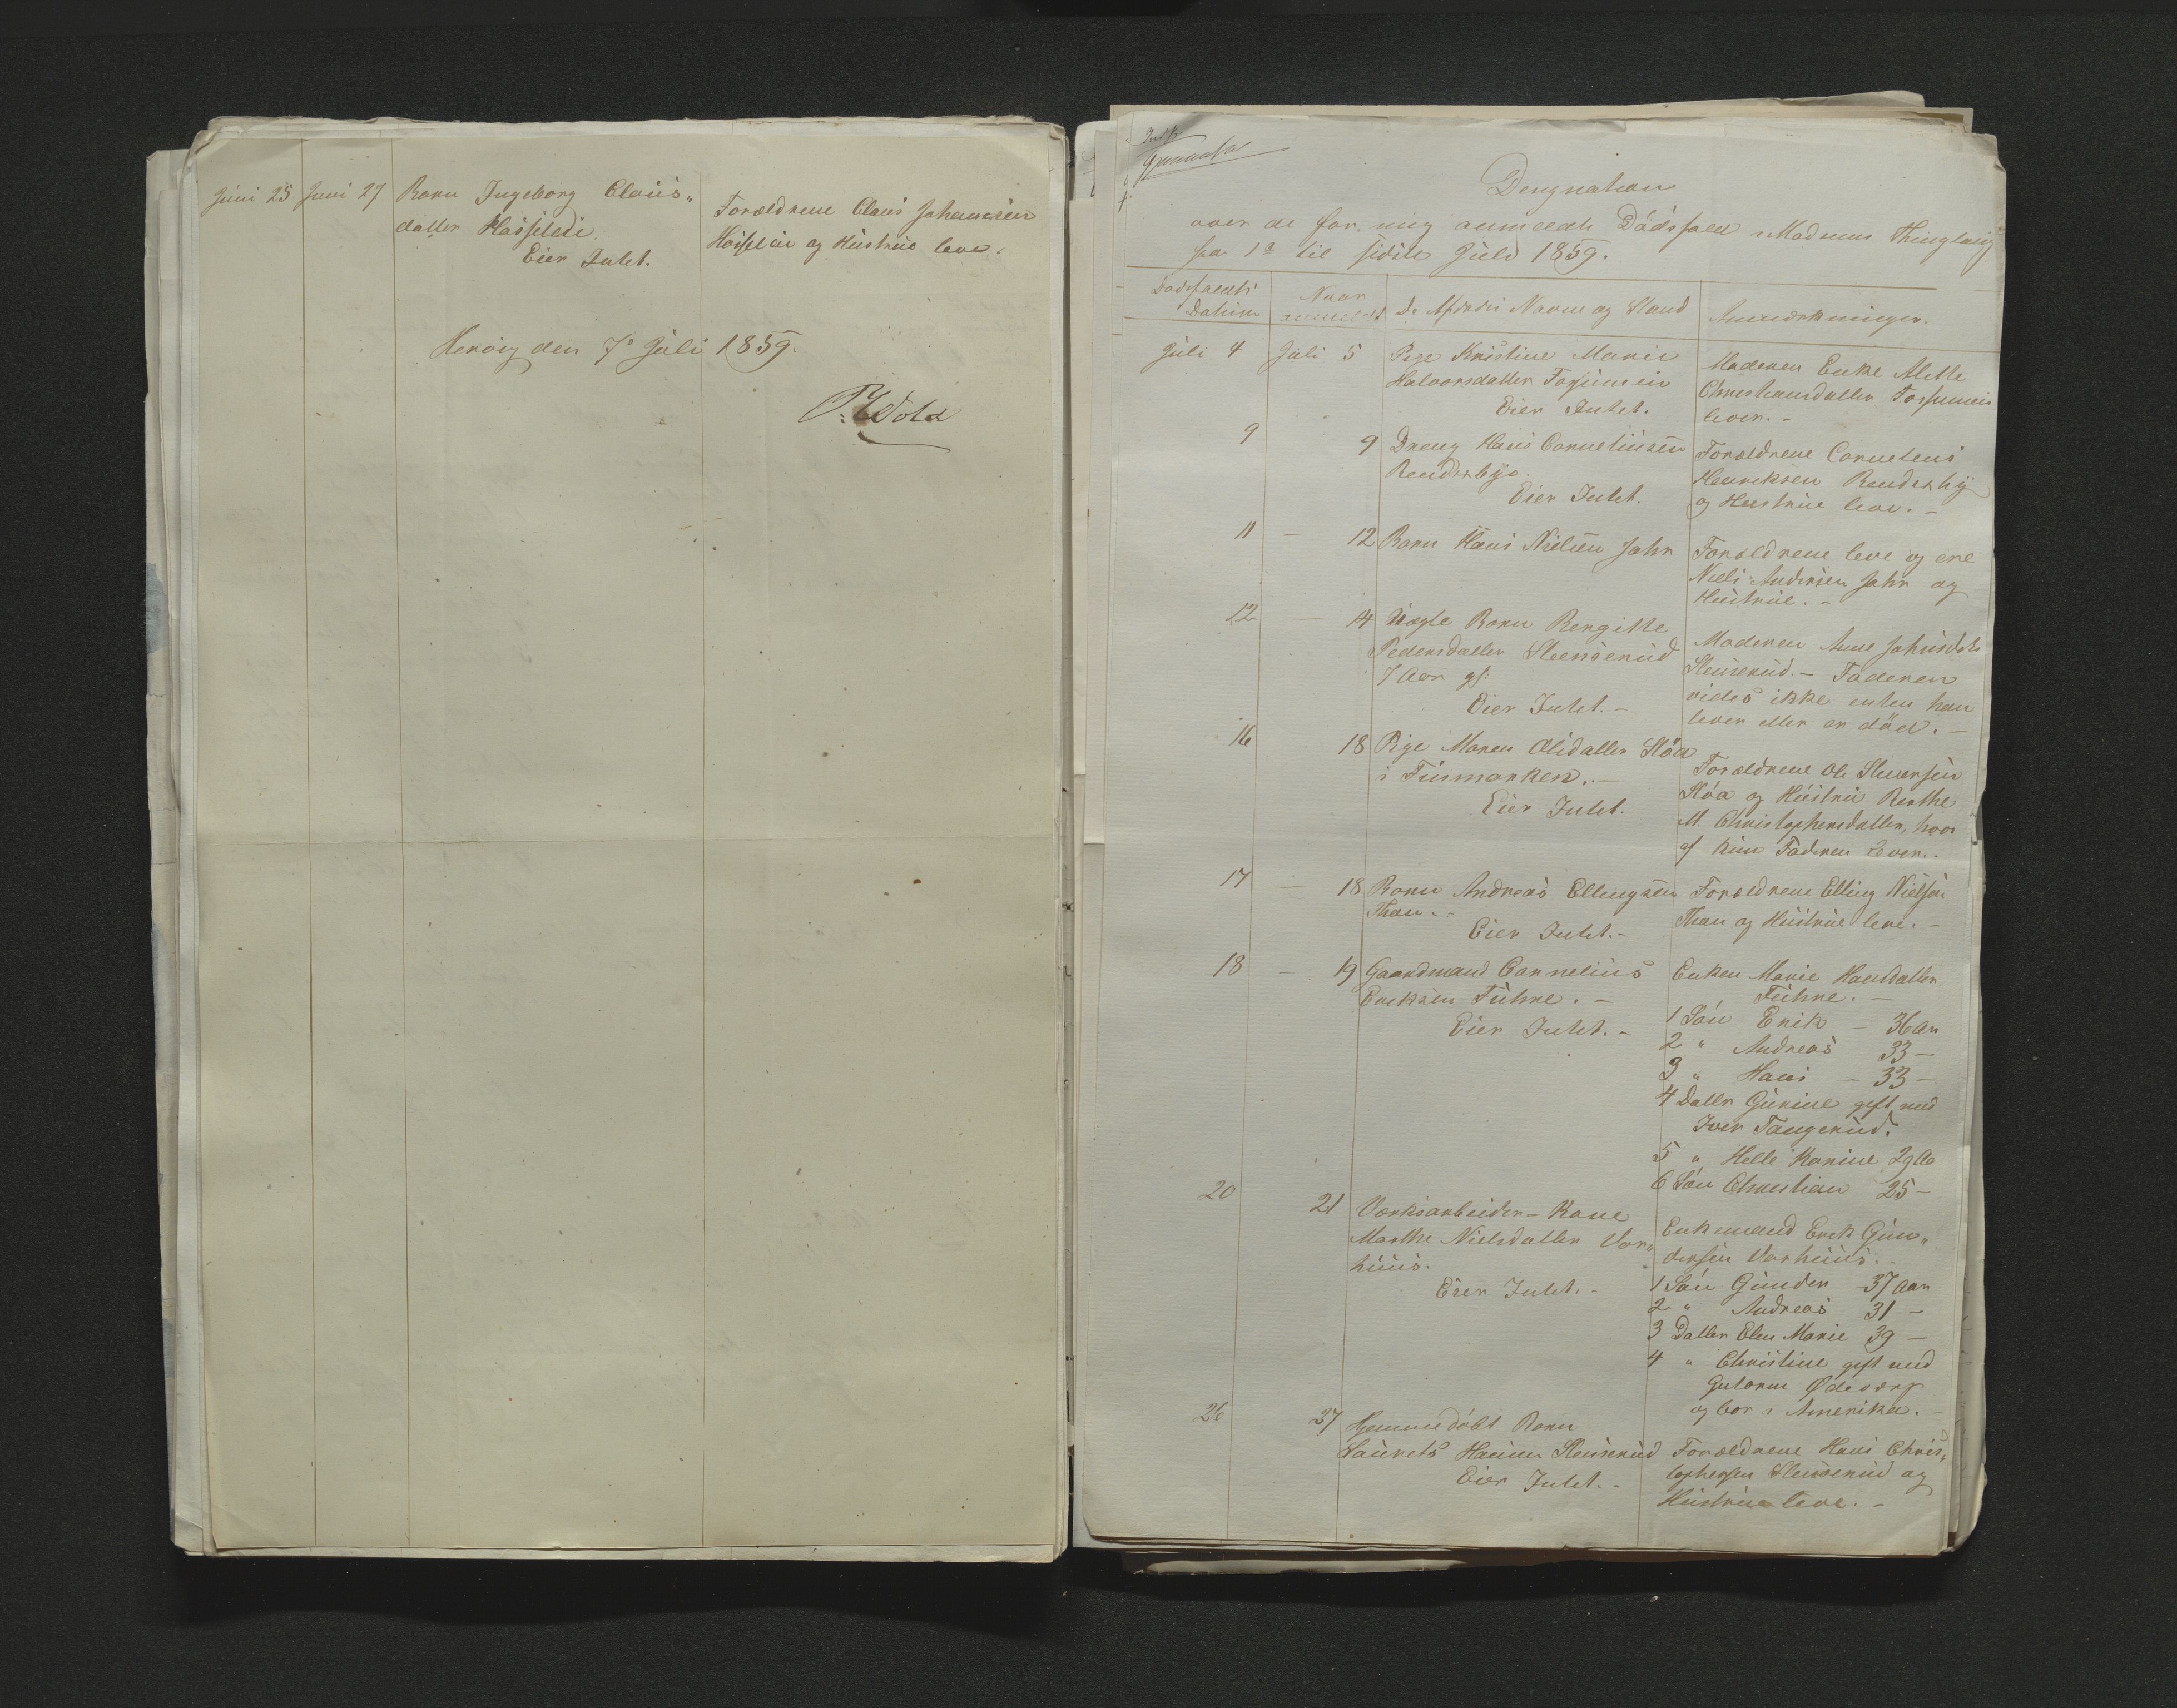 Juni 25 Juni 27 Barn Ingeborg Claus„
datter Hasseleie
Eier Intet.
Forældrene Claus Johannesen
Hasseleie og Hustrue leve.
Herøig den 7de Juli 1859.
Designation
over de for mig anmeldte Dödsfald i Modums Thinglaug
fra 1ste til sidste Juli 1859.
Dødsfaldets
Datum
Naar
anmeldt
De Afdødes Navne og Stand
Anmærkninger.
Juli 4 Juli 5 Pige Kristine Marie
Halvorsdatter Fossumeie
Eier Intet.
Moderen Enke Alette
Christiansdatter Fossumeie
lever. –
9 9 Dreng Hans Corneliusen
Eier Intet.
Forældrene Cornelius
Henriksen
og Hustrue leve. –
11 – 12 Barn Hans Nielsen Jahr
Forældrene leve og ere
Niels Andersen Jahr og
Hustrue. –
12 – 14 Uægte Barn Bergitte
Pedersdatter Steensrud
7 Aar gl.
Eier Intet. –
Moderen Anne Johnsdatr
Steensrud. – Faderen
vides ikke enten han
lever eller er död. –
16 18 Pige Maren Olsdatter Slöa
i Finmarken. –
Eier Intet.
Forældrene Ole Steensen
Slöa og Hustrue Berthe
M. Christophersdatter, hvor
af kun Faderen lever.
17 – 18 Barn Andreas Ellingsen
Than. –
Eier Intet. –
Forældrene Elling Nielsen
Than og Hustrue leve. –
18 – 19 Gaardmand Cornelius
Eriksen Fuhre. –
Eier Intet. –
Enken Marie Hansdatter
Fuhre. –
1 Sön Erik – 36 Aar
2 „ Andreas 33 –
3 „ Hans – 33 –
4 Datter Gurine gift med
Iver Tangerud.
5 „ Helle Karine 29 Aa
6 Sön Christian 25 –
20 21 Værksarbeider-Kone
Marthe Nielsdatter Vor„
huus.
Eier Intet. –
Enkemand Erik Gun„
dersen Vorhuus. –
1 Sön Gunder 37 Aar
2 „ Andreas 31 –
3 Datter Elen Marie 39 –
4 „ Christine gift med
Gulbrand
og bor i Amerika. –
26 27 Hjemmedöbt Barn
Laurets Hansen Steensrud
Eier Intet. –
Forældrene Hans Chris„
tophersen Steensrud og
Hustrue leve. –